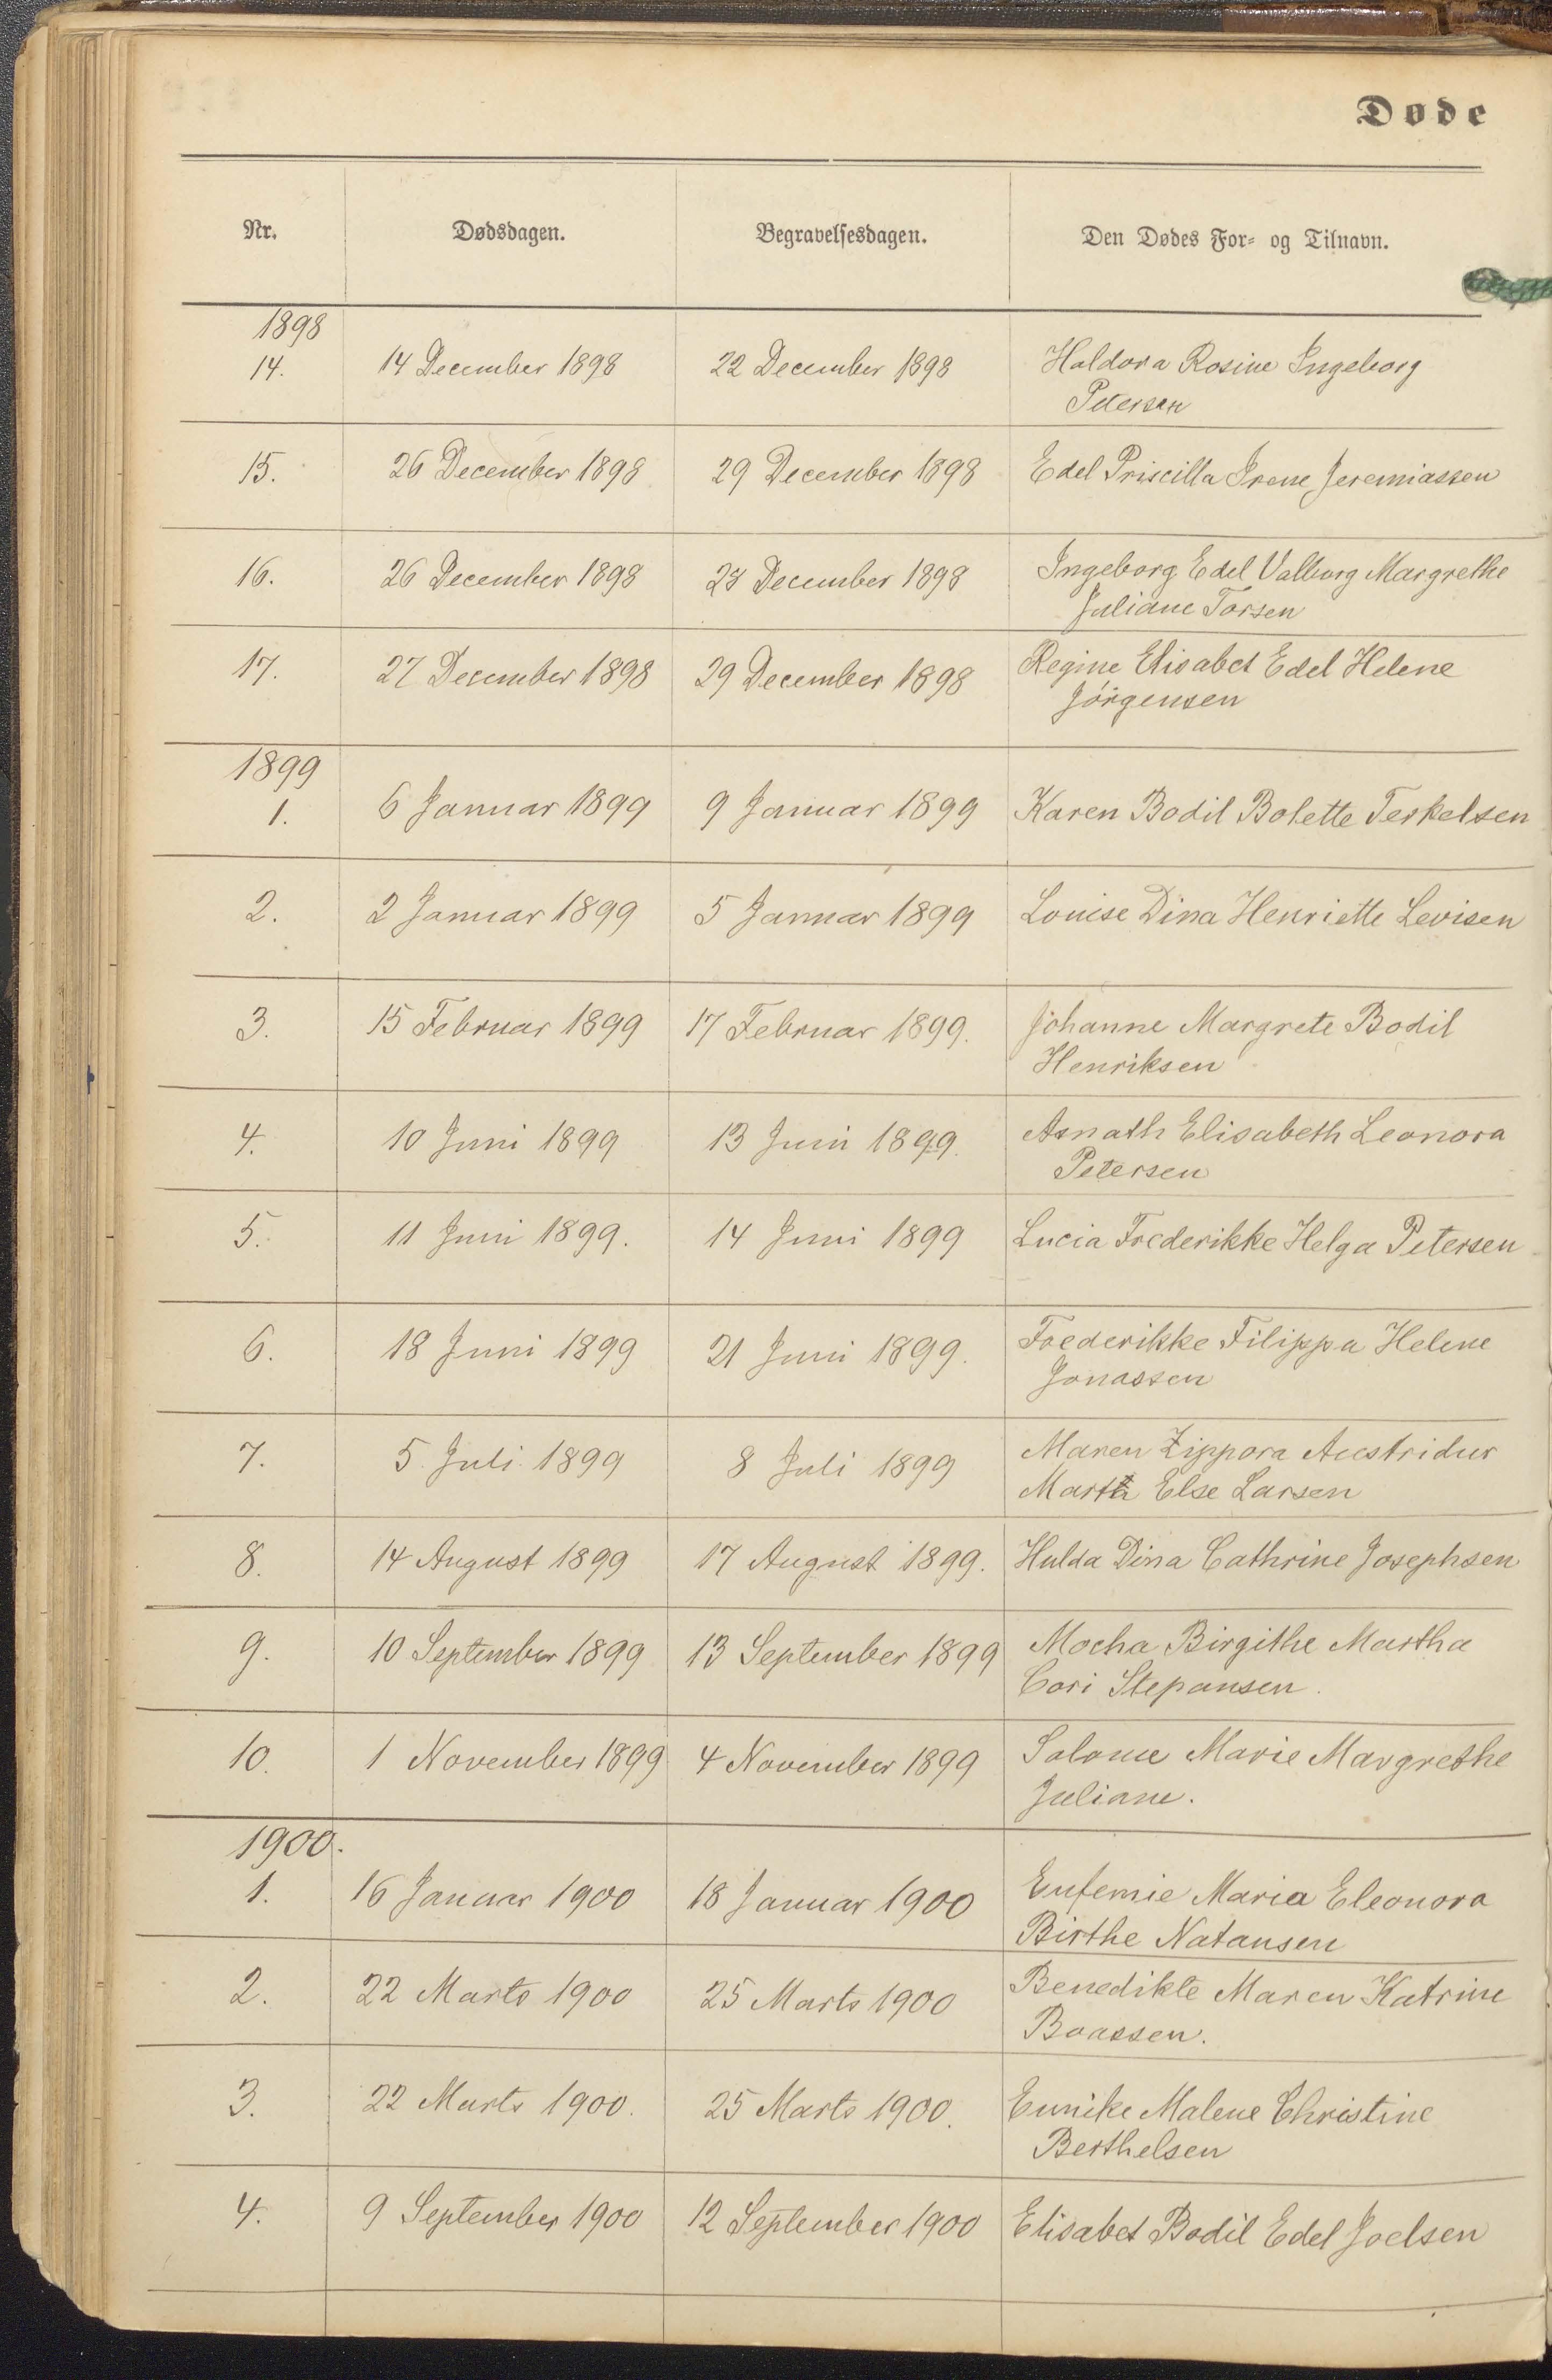 Døde
Nr. Dødsdagen. Begravelsesdagen. Den Dødes For- og Tilnavn.
1898
14. 14 December 1898 22 December 1898 Haldora Rosine Ingeborg
Petersen
15. 26 December 1898 29 December 1898 Edel Priscilla Irene Jeremiassen
16. 26 December 1898 28 December 1898 Ingeborg Edel Valborg Margrethe
Juliane Torsen
17. 27 December 1898 29 December 1898 Regine Elisabet Edel Helene
Jörgensen
1899
1. 6 Januar 1899 9 Januar 1899 Karen Bodil Bolette Terkelsen
2. 2 Januar 1899 5 Januar 1899 Louise Dina Henriette Levisen
3. 15 Februar 1899 17 Februar 1899. Johanne Margrete Bodil
Henriksen
4. 10 Juni 1899 13 Juni 1899. Asnath Elisabeth Leonora
Petersen
5. 11 Juni 1899. 14 Juni 1899 Lucia Frederikke Helga Petersen
6. 18 Juni 1899 21 Juni 1899. Frederikke Filippa Helene
Jonassen
7. 5 Juli 1899 8 Juli 1899 Maren Zippora Austridur
Else Larsen
8. 14 August 1899 17 August 1899. Hulda Dina Cathrine Josephsen
9. 10 September 1899 13 September 1899 Mocha Birgithe Martha
Cori Stepansen.
10. 1 November 1899 4 November 1899 Salome Marie Margrethe
Juliane.
1900.
1. 16 Januar 1900 18 Januar 1900 Eufemie Maria Eleonora
Birthe Natansen
2. 22 Marts 1900 25 Marts 1900 Benedikte Maren Katrine
Boassen.
3. 22 Marts 1900. 25 Marts 1900. Eunike Malene Christine
Berthelsen
4. 9 September 1900 12 September 1900 Elisabet Bodil Edel Joelsen